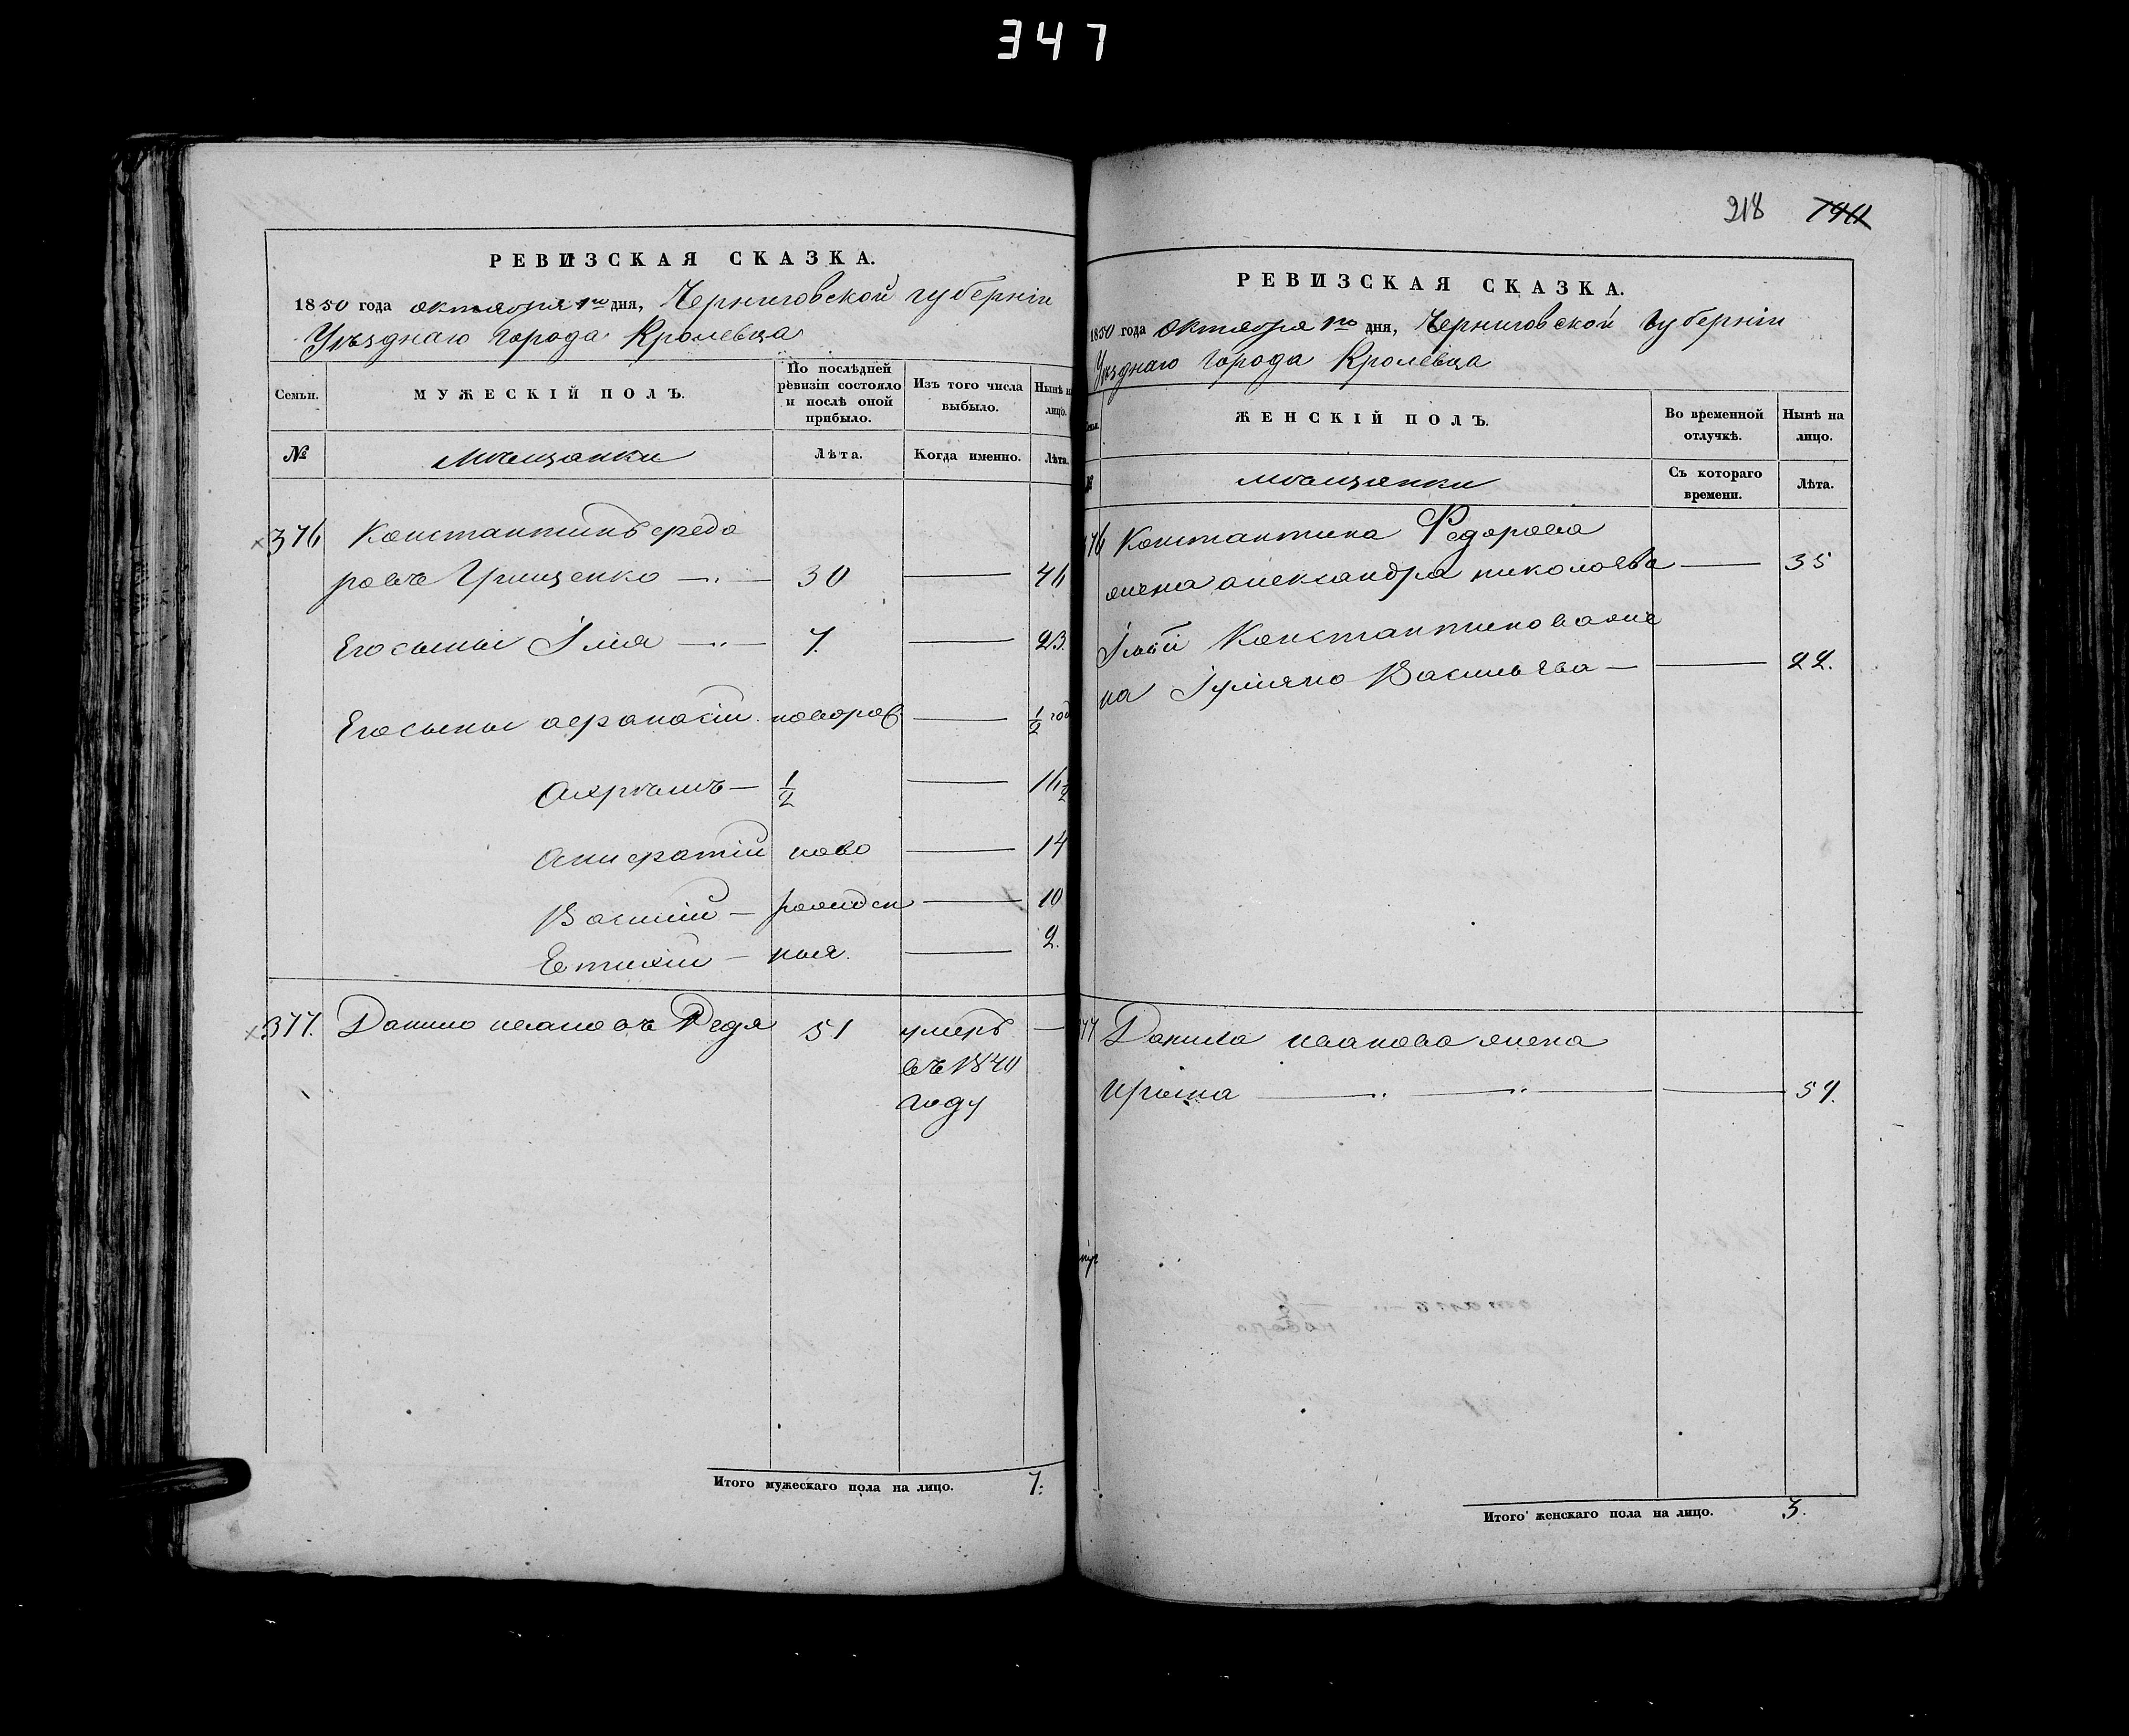 347
РЕВИЗСКАЯ СКАЗКА.
1850 года октября 1го дня, Черниговской губерніи
Уѣзднаго города Кролевца
Семьи.
МУЖЕСКІЙ ПОЛЪ.
По послѣдней ревизіи состояло и послѣ оной прибыло.
Изъ того числа выбыло.
Нынѣ на лицо.
№
Мѣщанки
Лѣта.
Когда именно.
Лѣта.
376 Константинъ Федо
ровъ Грищенко 30 — 46
Его сыны Ілія 7. — 23.
Его сыны афанасій новорож — ½ год
Ахрѣмъ — ½ — 16½
Онифатій ново — 14
Василій — рожден — 10
Евтихій — ныя. — 2.
377. Данило ивановъ 51 умеръ —
въ 1840
году
Итого мужескаго пола на лицо. 7.
218
РЕВИЗСКАЯ СКАЗКА.
1850 года Октября 1го дня, Черниговской Губерніи
Уѣзднаго города Кролевца
ЖЕНСКІЙ ПОЛЪ.
Во временной отлучкѣ.
Нынѣ на лицо.
№
мѣщанки
Съ котораго времени.
Лѣта.
376 Константина Федорова
жена александра николаева — 35
Ільи Константинова же
на Іуліяна Васильева — 22.
377 Данила иванова жена
Ирина — 57.
Итого женскаго пола на лицо. 3.